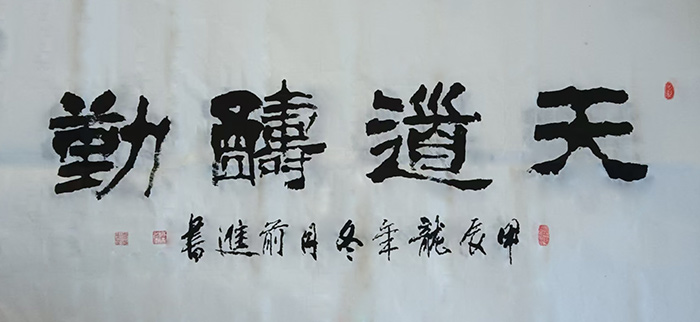 天道醻勤
甲辰龍年冬月前進書